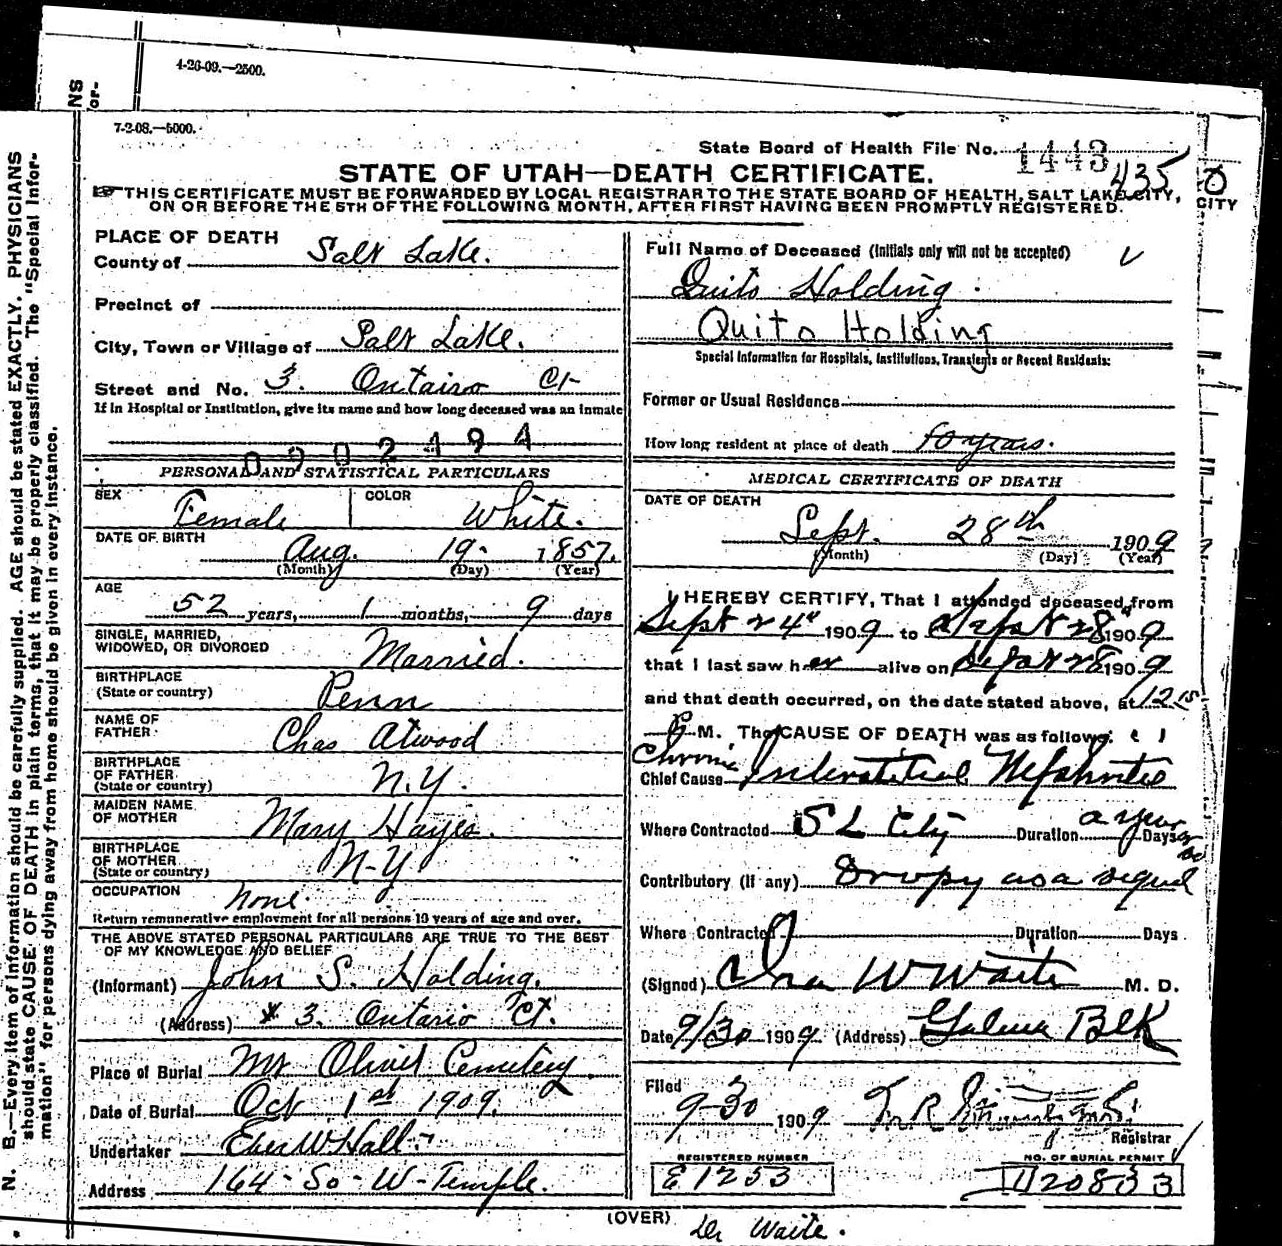 4-26-09.—2500.
NS
or-
7-2-08.—5000.
State Board of Health File No. 1443
435
0
STATE OF UTAH—DEATH CERTIFICATE.
THIS CERTIFICATE MUST BE FORWARDED BY LOCAL REGISTRAR TO THE STATE BOARD OF HEALTH, SALT LAKE CITY,
CITY
ON OR BEFORE THE 5TH OF THE FOLLOWING MONTH, AFTER FIRST HAVING BEEN PROMPTLY REGISTERED.
N. B.—Every item of information should be carefully supplied. AGE should be stated EXACTLY. PHYSICIANS
should state CAUSE OF DEATH in plain terms, that it may be properly classified. The "Special Infor-
mation" for persons dying away from home should be given in every instance.
PLACE OF DEATH
County of Salt Lake.
Precinct of
City, Town or Village of Salt Lake.
Street and No. 3. Ontairo Ct
If in Hospital or Institution, give its name and how long deceased was an inmate
0902494
PERSONAL AND STATISTICAL PARTICULARS
SEX Female COLOR White.
DATE OF BIRTH Aug. 19- 1857.
(Month) (Day) (Year)
AGE
52 years, 1 months, 9 days
SINGLE, MARRIED,
WIDOWED, OR DIVORCED Married.
BIRTHPLACE
(State or country) Penn
NAME OF
FATHER Chas Atwood
BIRTHPLACE
OF FATHER
(State or country) N.Y.
MAIDEN NAME
OF MOTHER Mary Hayes.
BIRTHPLACE
OF MOTHER
(State or country) N-Y
OCCUPATION none.
Return remunerative employment for all persons 10 years of age and over.
THE ABOVE STATED PERSONAL PARTICULARS ARE TRUE TO THE BEST
OF MY KNOWLEDGE AND BELIEF
(Informant) John S. Holding.
(Address) # 3. Ontario Ct.
Place of Burial Mt Olivet Cemetery.
Date of Burial Oct 1st 1909.
Undertaker Eber W Hall-
Address 164-So-W-Temple.
Full Name of Deceased (Initials only will not be accepted)
Quito Holding.
Quito Holding
Special Information for Hospitals, Institutions, Transients or Recent Residents:
Former or Usual Residence
How long resident at place of death 50 years.
MEDICAL CERTIFICATE OF DEATH
DATE OF DEATH
Sept. 28th 1909
(Month) (Day) (Year)
I HEREBY CERTIFY, That I attended deceased from
Sept 24" 1909 to Sept 28" 1909
that I last saw her alive on Sept 28 1909
and that death occurred, on the date stated above, at 12 15
P.M. The CAUSE OF DEATH was as follows:
Chronic
Chief Cause Interstitial Nephritis
Where Contracted S L City Duration a year Days
Contributory (if any) Dropy as a sequel
Where Contracted Duration Days
(Signed) Ira W Waite M. D.
Date 9/30 1909 (Address) Galena Blk
Filed
9-30 1909
Registrar
REGISTERED NUMBER
E1253
NO. OF BURIAL PERMIT
D20833
(OVER)
Dr Waite.